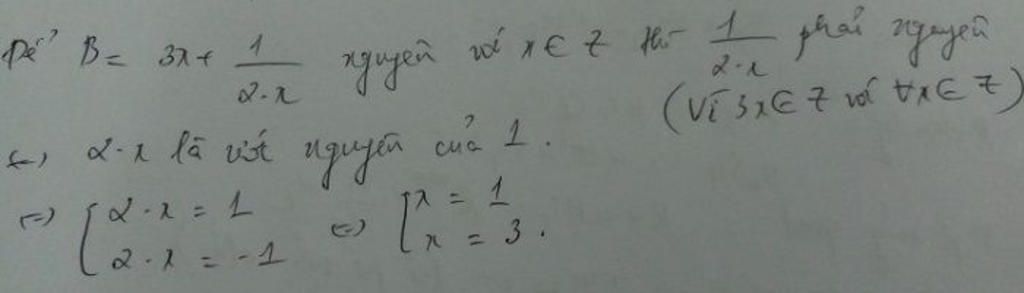 Để B = 3x + 1/(2-x) nguyên với x ∈ Z thì 1/(2-x) phải nguyên
(Vì 3x ∈ Z với ∀x ∈ Z)
<=> 2-x là ước nguyên của 1.
<=> [ 2-x = 1 <=> [ x = 1
2-x = -1 x = 3.